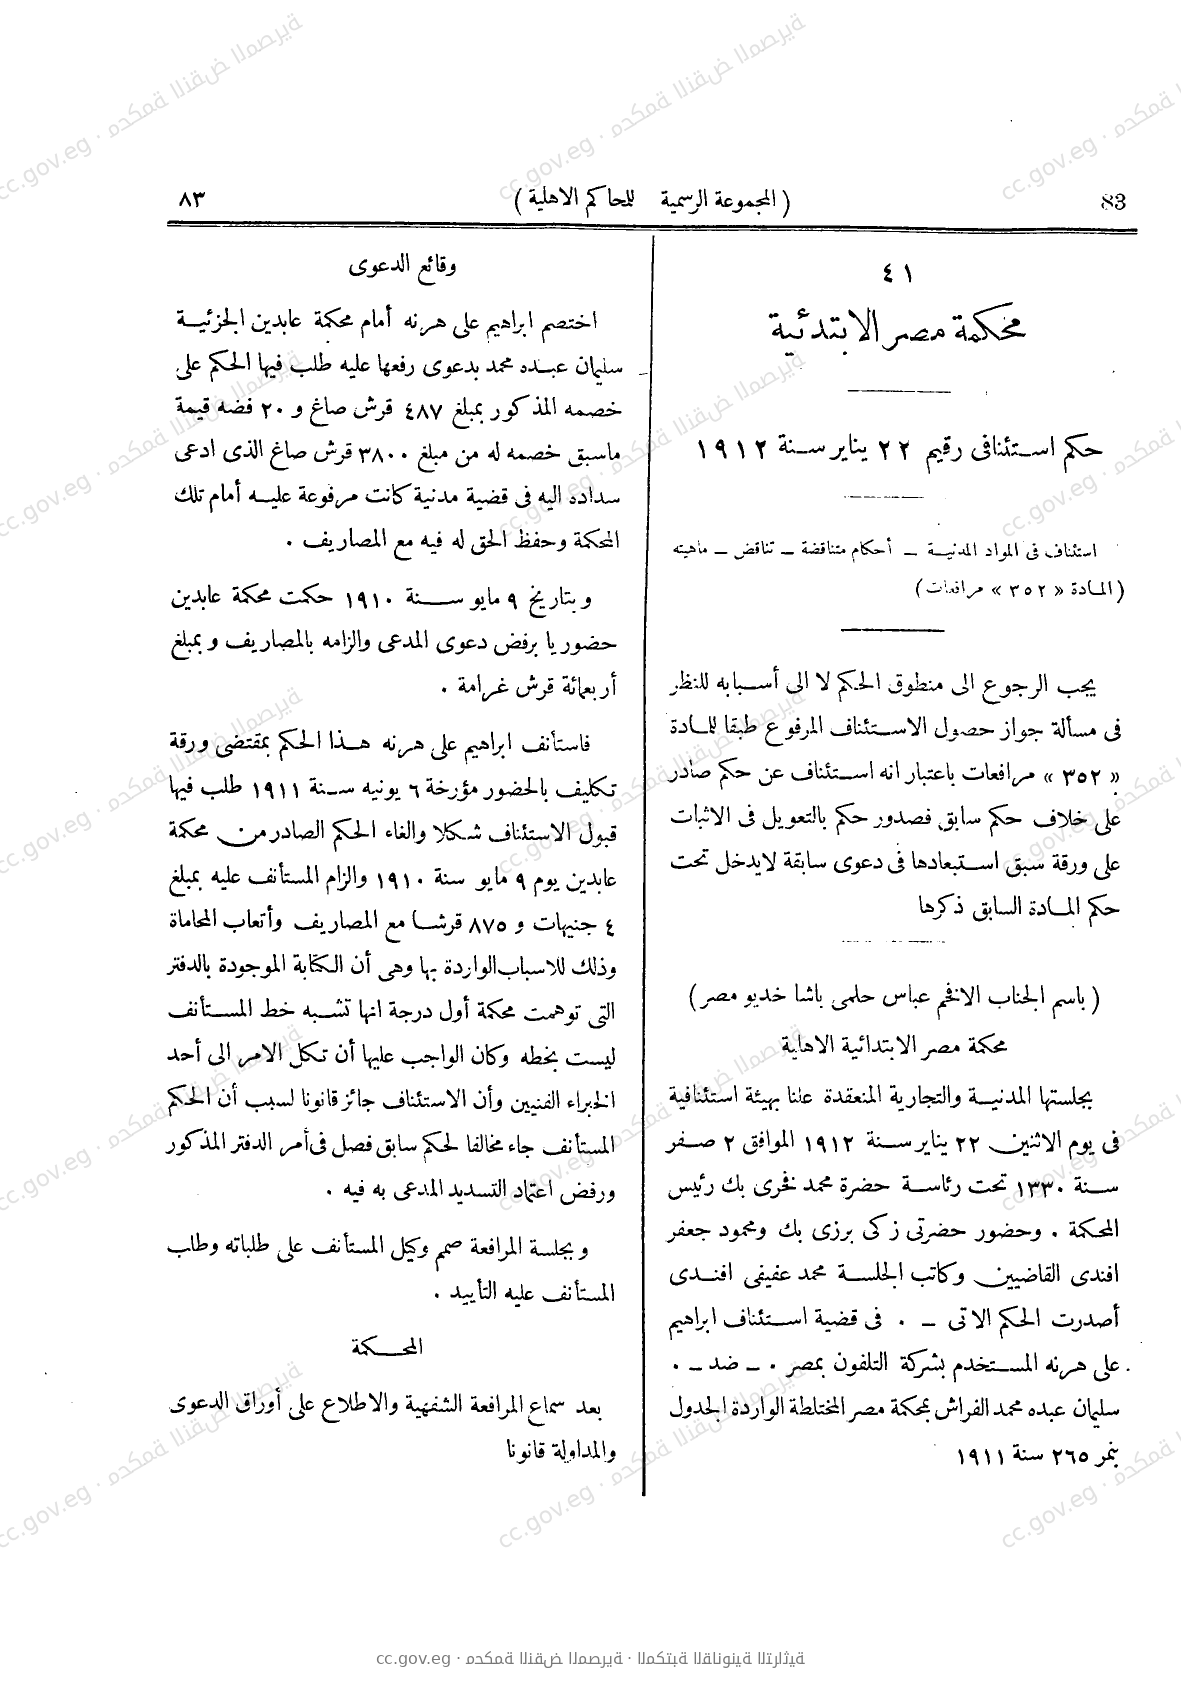 83
( المجموعة الرسمية للمحاكم الاهلية )
٨٣
٤١
محكمة مصر الابتدئية
حكم استئنافى رقيم ٢٢ يناير سنة ١٩١٢
استئناف فى المواد المدنية – أحكام متناقضة – تناقض – ماهيته
( المادة « ٣٥٢ » مرافعات )
يجب الرجوع الى منطوق الحكم لا الى أسبابه للنظر
فى مسألة جواز حصول الاستئناف المرفوع طبقا للمادة
« ٣٥٢ » مرافعات باعتبار انه استئناف عن حكم صادر
على خلاف حكم سابق فصدور حكم بالتعويل فى الاثبات
على ورقة سبق استبعادها فى دعوى سابقة لايدخل تحت
حكم المادة السابق ذكرها
( باسم الجناب الافخم عباس حلمى باشا خديو مصر )
محكمة مصر الابتدائية الاهلية
بجلستها المدنية والتجارية المنعقدة علنا بهيئة استئنافية
فى يوم الاثنين ٢٢ يناير سنة ١٩١٢ الموافق ٢ صفر
سنة ١٣٣٠ تحت رئاسة حضرة محمد فخرى بك رئيس
المحكمة . وحضور حضرتى زكى برزى بك ومحمود جعفر
افندى القاضيين وكاتب الجلسة محمد عفيفى افندى
أصدرت الحكم الاتى – . فى قضية استئناف ابراهيم
على هرنه المستخدم بشركة التلفون بمصر . – ضد – .
سليمان عبده محمد الفراش بمحكمة مصر المختلطة الواردة الجدول
بنمر ٢٦٥ سنة ١٩١١
وقائع الدعوى
اختصم ابراهيم على هرنه أمام محكمة عابدين الجزئية
سليمان عبده محمد بدعوى رفعها عليه طلب فيها الحكم على
خصمه المذكور بمبلغ ٤٨٧ قرش صاغ و ٢٠ فضه قيمة
ماسبق خصمه له من مبلغ ٣٨٠٠ قرش صاغ الذى ادعى
سداده اليه فى قضية مدنية كانت مرفوعة عليه أمام تلك
المحكمة وحفظ الحق له فيه مع المصاريف .
وبتاريخ ٩ مايو سنة ١٩١٠ حكمت محكمة عابدين
حضوريا برفض دعوى المدعى والزامه بالمصاريف وبمبلغ
أربعمائة قرش غرامة .
فاستأنف ابراهيم على هرنه هذا الحكم بمقتضى ورقة
تكليف بالحضور مؤرخة ٦ يونيه سنة ١٩١١ طلب فيها
قبول الاستئناف شكلا والغاء الحكم الصادر من محكمة
عابدين يوم ٩ مايو سنة ١٩١٠ والزام المستأنف عليه بمبلغ
٤ جنيهات و ٨٧٥ قرشا مع المصاريف وأتعاب المحاماة
وذلك للاسباب الواردة بها وهى أن الكتابة الموجودة بالدفتر
التى توهمت محكمة أول درجة انها تشبه خط المستأنف
ليست بخطه وكان الواجب عليها أن تكل الامر الى أحد
الخبراء الفنيين وأن الاستئناف جائز قانونا لسبب أن الحكم
المستأنف جاء مخالفا لحكم سابق فصل فى أمر الدفتر المذكور
ورفض اعتماد التسديد المدعى به فيه .
وبجلسة المرافعة صمم وكيل المستأنف على طلباته وطلب
المستأنف عليه التأييد .
المحكمة
بعد سماع المرافعة الشفهية والاطلاع على أوراق الدعوى
والمداولة قانونا
cc.gov.eg · محكمة النقض المصرية · المكتبة القانونية التراثية